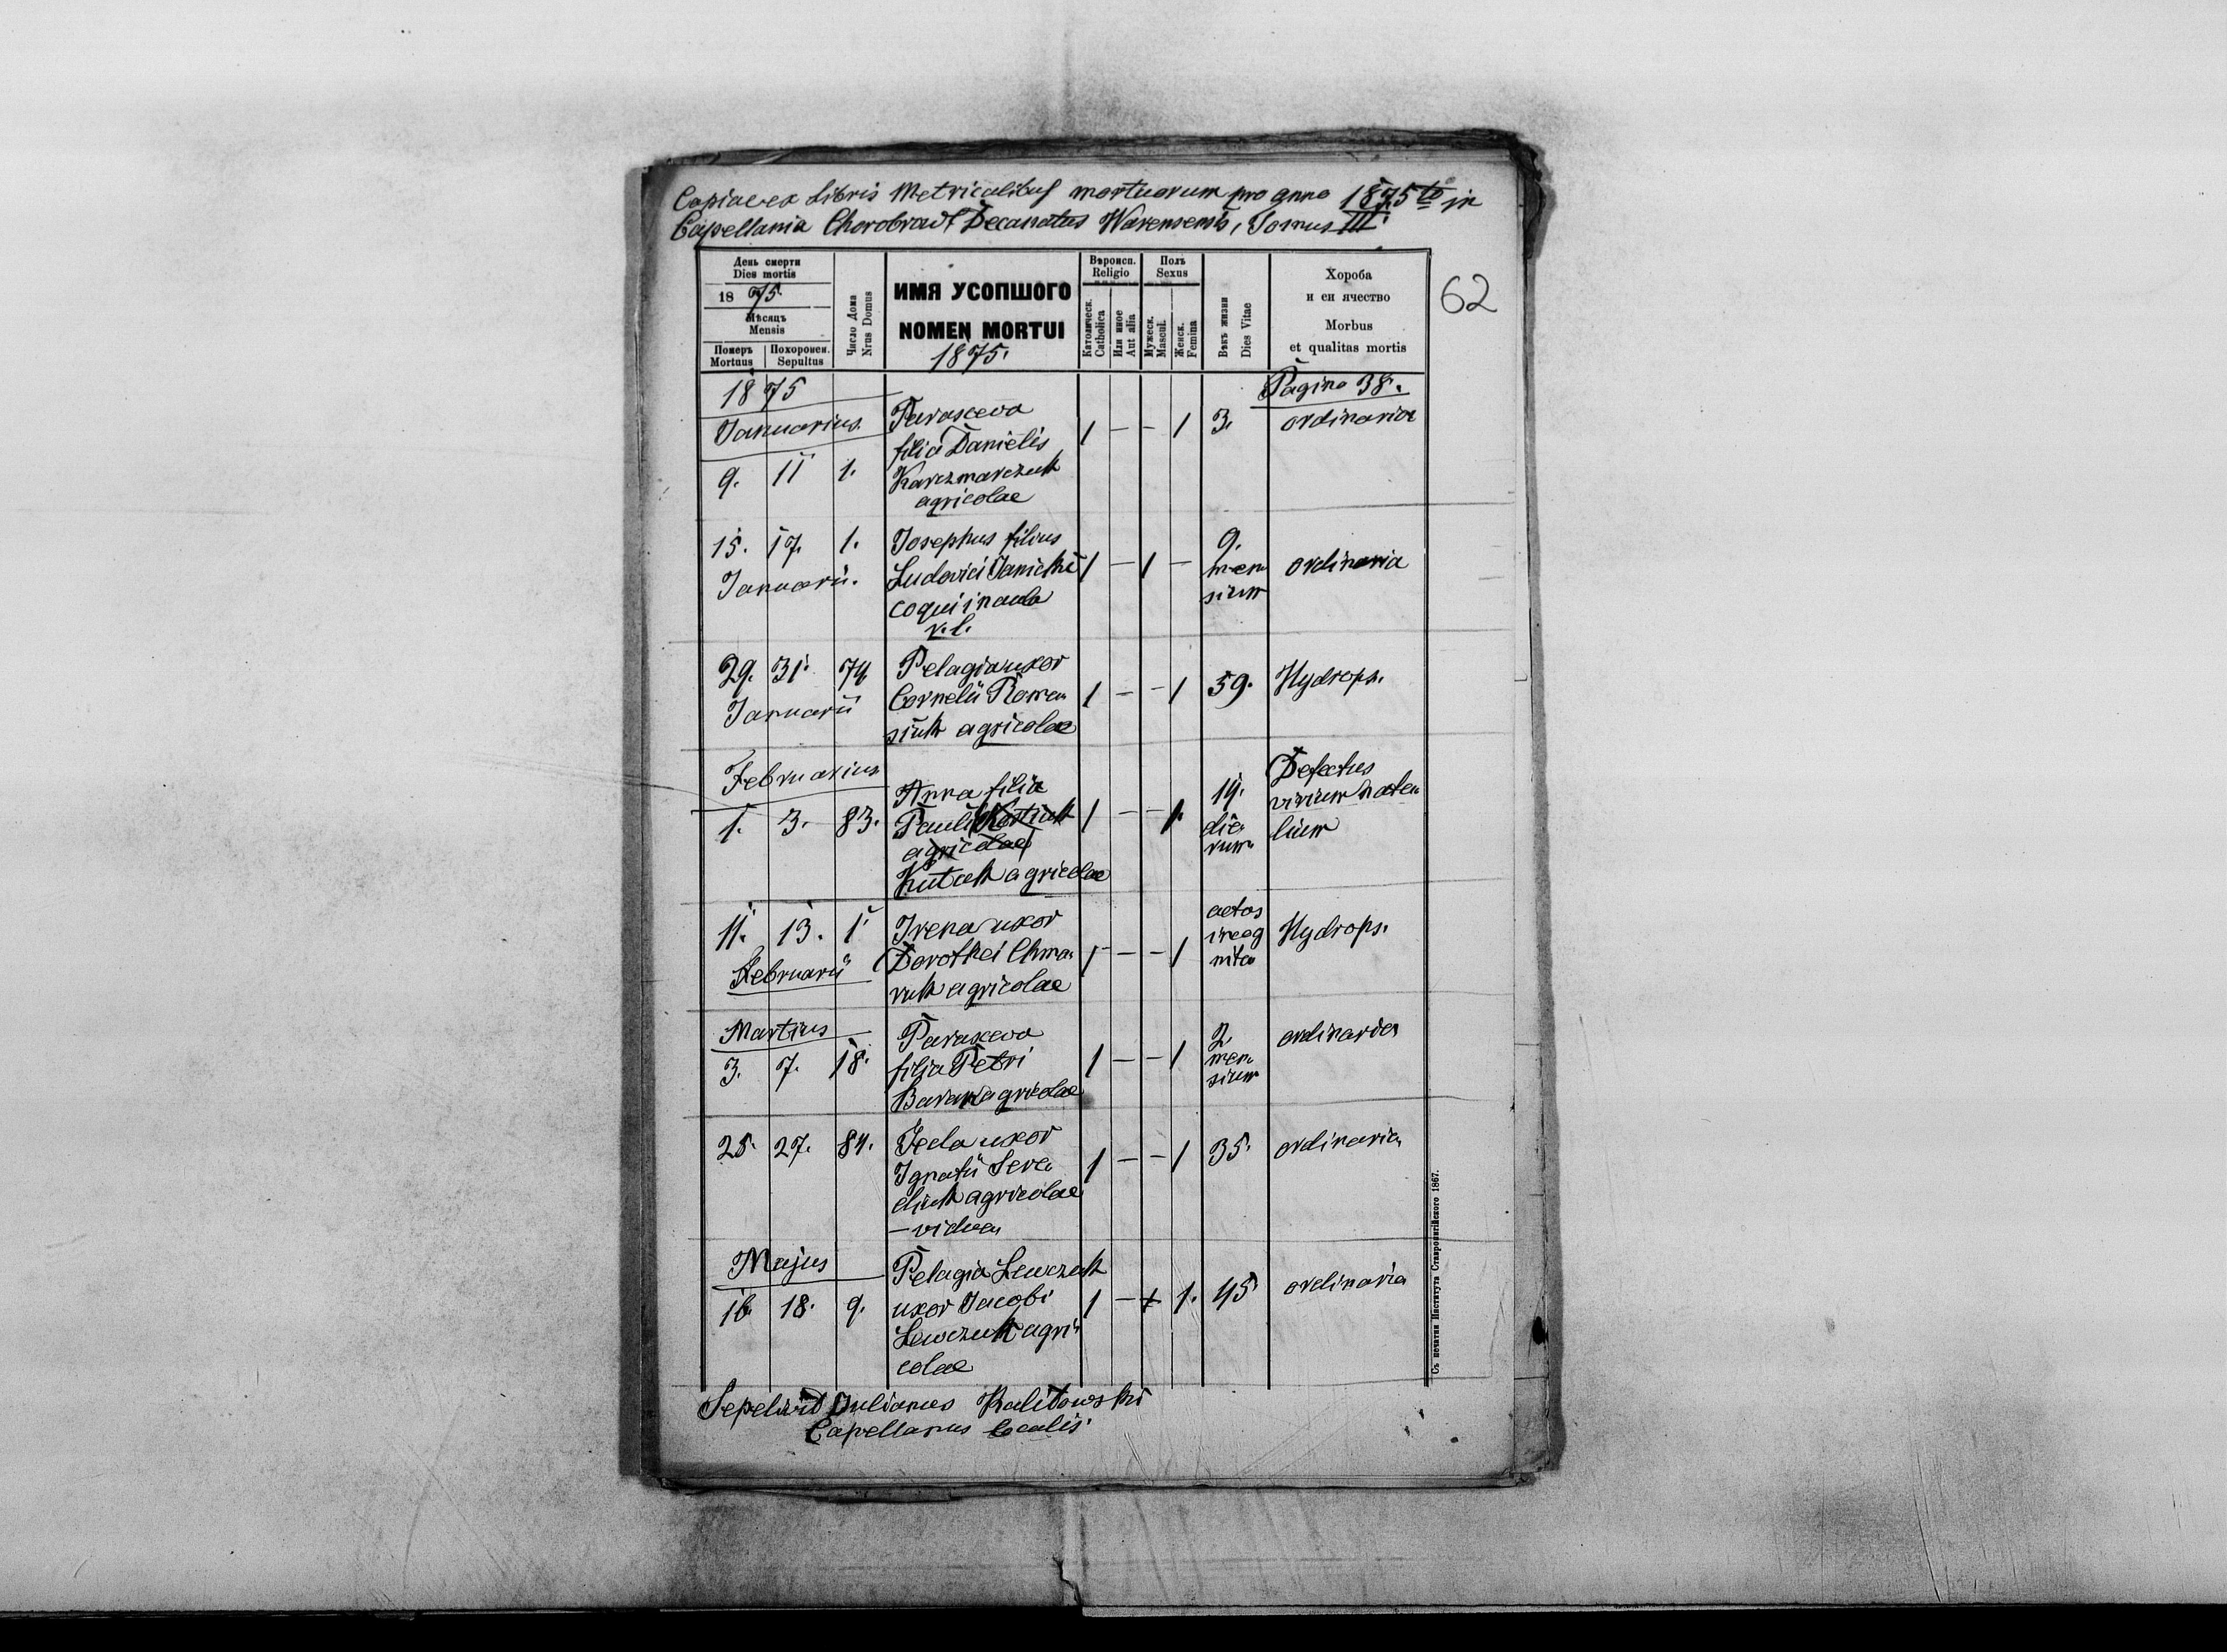 Copia ex Libris Metricalibus mortuorum pro anno 1875to in
Capellania Chorobrów Decanatus Warensensis, Tomus III.
62
День смерти
Dies mortis
1875.
Мѣсяцъ
Mensis
Померъ
Mortuus
Похоронен.
Sepultus
Число Дома
Nrus Domus
ИМЯ УСОПШОГО
NOMEN MORTUI
1875.
Вѣроисп.
Religio
Католическ.
Catholica
Или иное
Aut alia
Полъ
Sexus
Мужеск.
Mascul.
Женск.
Femina
Вѣкъ жизни
Dies Vitae
Хороба
и еи ячество
Morbus
et qualitas mortis
1875
Pagina 38.
Januarius
9. 11 1. Parascewa
filia Danielis
Karczmarczuk
agricolae
1 — — 1 3. ordinaria
15. 17. 1.
Januarii.
Josephus filius
Ludovici Janicki
coqui in aula
r. l.
1 — 1 —
9.
men
sium
ordinaria
29. 31.
Januarii
Pelagia uxor
Cornelii Roma
siuk agricolae
1 — — 1 59. Hydrops.
Februarius
1. 3. 83. Anna filia
Pauli Kostiuk
agricolae
Kutak agricolae
1 — — 1.
19.
die
rum
Defectus
virium nata
lium
11. 13. 1
Februarii
Irena uxor
Dorothei Chma
ruk agricolae
1 — — 1
aetas
incog
nita
Hydrops.
Martius
3. 7. 18. Parascewa
filia Petri
Baran agricolae
1 — — 1
2
men
sium
ordinaria
25. 27. 84. Fecla uxor
Ignatii Sere
diuk agricolae
— vidua
1 — — 1 35. ordinaria
Majus
16. 18. 9. Pelagia Lewczuk
uxor Jacobi
Lewczuk agri
colae
1 — + 1. 45 ordinaria
Sepelivit Julianus Kalitowski
Capellanus localis
Съ печатни Института Ставропигійского 1867.